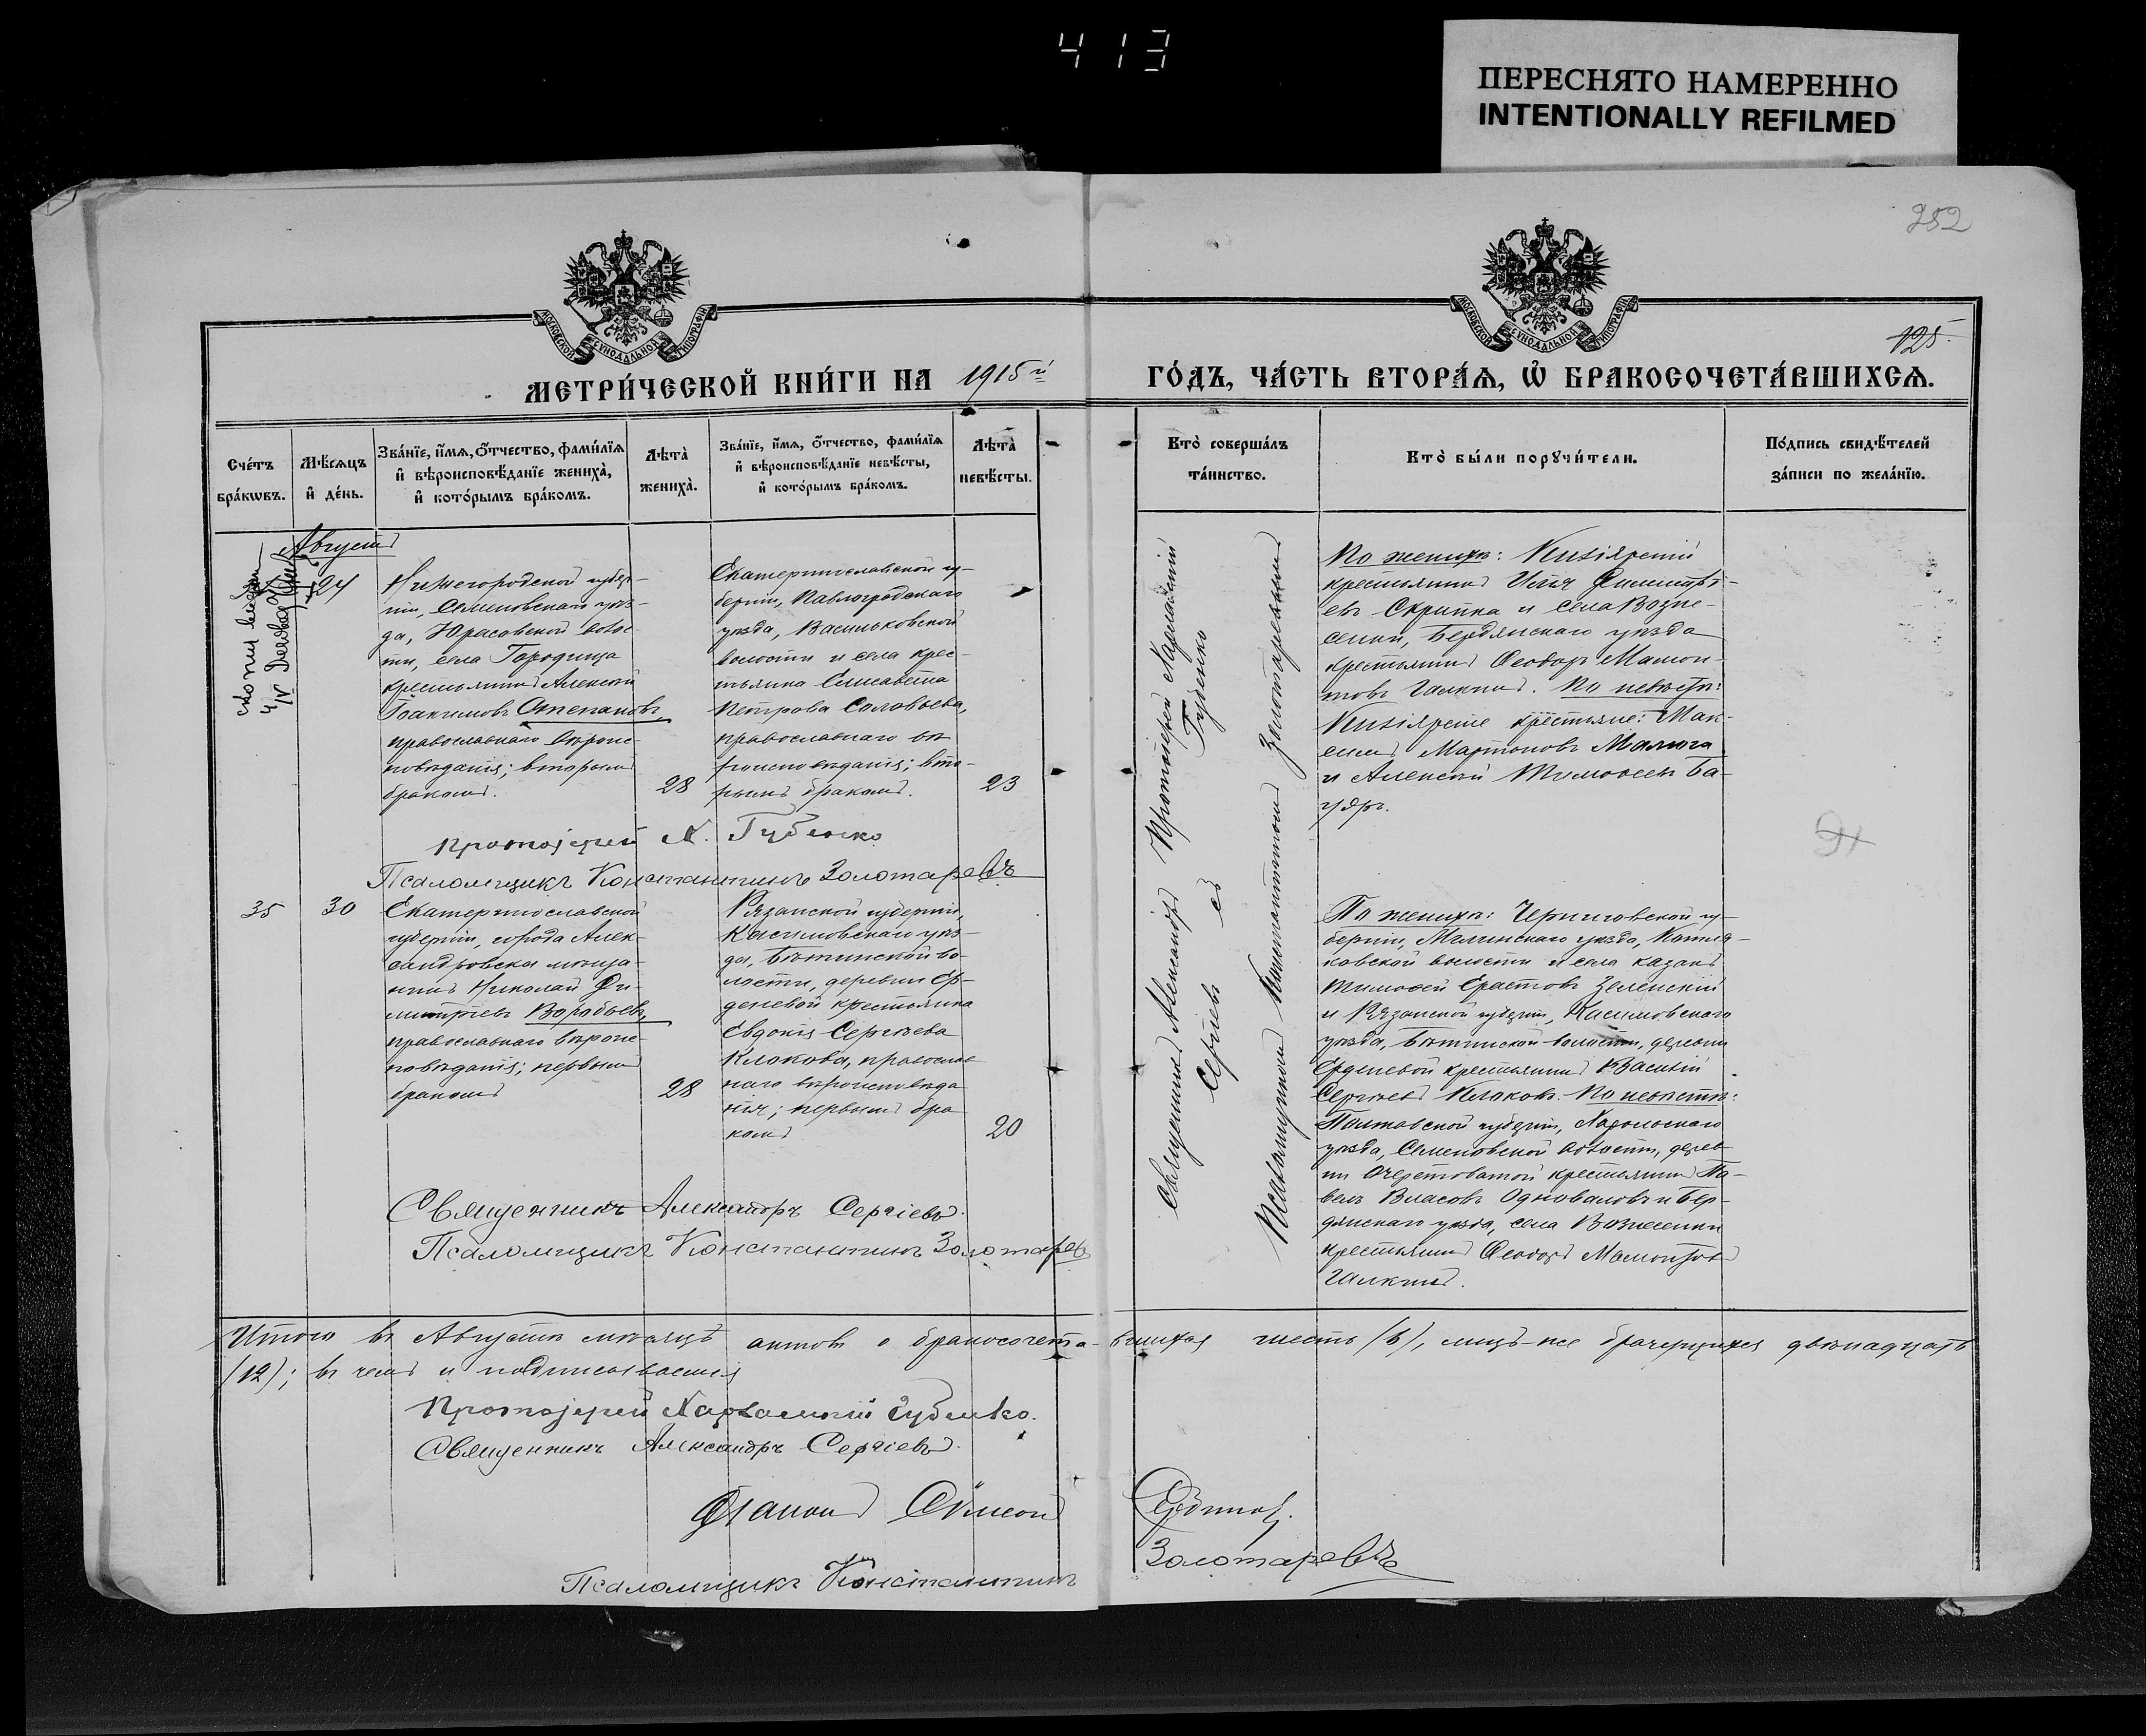 413
ПЕРЕСНЯТО НАМЕРЕННО
INTENTIONALLY REFILMED
252
125.
МОСКОВСКОЙ СѴНОДАЛЬНОЙ ТИПОГРАФІИ
МОСКОВСКОЙ СѴНОДАЛЬНОЙ ТИПОГРАФІИ
МЕТРИ́ЧЕСКОЙ КНИ́ГИ НА 1915й ГО́ДЪ, ЧА́СТЬ ВТОРА́Ѧ, Ѽ БРАКОСОЧЕТА́ВШИХСѦ.
Сче́тъ бра́кѡвъ.
Мѣ́сѧцъ и҆ де́нь.
Зва́нїе, и҆́мѧ, ѻ҆́тчество, фами́лїѧ и҆ вѣроисповѣ́данїе жениха̀, и҆ кото́рымъ бра́комъ.
Лѣта̀ жениха̀.
Зва́нїе, и҆́мѧ, ѻ҆́тчество, фами́лїѧ и҆ вѣроисповѣ́данїе невѣ́сты, и҆ кото́рымъ бра́комъ.
Лѣта̀ невѣ́сты.
Кто̀ соверша́лъ та́инство.
Кто̀ бы́ли порꙋчи́тели.
По́дпись свидѣ́телей за́писи по жела́нїю.
Августъ
24
Нижегородской губер-
ніи, Семеновскаго уѣз-
да, Юрасовской волос-
ти, села Городища
крестьянинъ Алексѣй
Іоакимовъ Степановъ,
православнаго вѣроис-
повѣданія; вторымъ
бракомъ.
28
Екатеринославской гу-
берніи, Павлоградскаго
уѣзда, Васильковской
волости и села крес-
тьянка Елисавета
Петрова Соловьева,
православнаго вѣ-
роисповѣданія; вто-
рымъ бракомъ.
23
Протоіерей Х. Губенко
Псаломщикъ Константинъ Золотаревъ
Протоіерей Харлампій Губенко
Священникъ Александръ Сергіевъ съ
Псаломщикомъ Константиномъ Золотаревымъ
По женихѣ:
крестьянинъ Илья Димитрі-
евъ Скрипка и села Возне-
сенки, Бердянскаго уѣзда
крестьянинъ Ѳеодоръ Мамон-
товъ Галкинъ. По невѣстѣ:
крестьяне: Мак-
симъ Мартоновъ Малюга
и Алексѣй Тимоѳеевъ Ба-
гдяръ.
35
30
Екатеринославской
губерніи, города Алек-
сандровска мѣща-
нинъ Николай Ди-
митріевъ Воробьевъ,
православнаго вѣроис-
повѣданія; первымъ
бракомъ
28
Рязанской губерніи,
Касимовскаго уѣз-
да, Бѣтинской во-
лости, деревни Ер-
деневой крестьянка
Евдокія Сергѣева
Клокова, православ-
наго вѣроисповѣда-
нія; первымъ бра-
комъ
20
По женихѣ: Черниговской гу-
берніи, Мглинскаго уѣзда,
волости и села казакъ
Тимоѳей Ерастовъ Зеленскій
и Рязанской губерніи, Касимовскаго
уѣзда, Бѣтинской волости, деревни
Ерденевой крестьянинъ Василій
Сергѣевъ Клоковъ. По невѣстѣ:
Полтавской губерніи, Хорольскаго
уѣзда, Семеновской волости, дерев-
ни Очеретоватой крестьянинъ Па-
велъ Власовъ Одноваловъ и Бер-
дянскаго уѣзда, села Вознесенки
крестьянинъ Ѳеодоръ Мамонтовъ
Галкинъ.
Священникъ Александръ Сергіевъ.
Псаломщикъ Константинъ Золотаревъ
Итого въ Августѣ мѣсяцѣ актовъ о бракосочета-вшихся шесть (6), лицъ-же брачущихся двѣнадцать
(12); въ чемъ и подписываемся
Протоіерей Харлампій Губенко.
Священникъ Александръ Сергіевъ.
Діаконъ Сѵмеон
Псаломщикъ Константинъ Золотаревъ